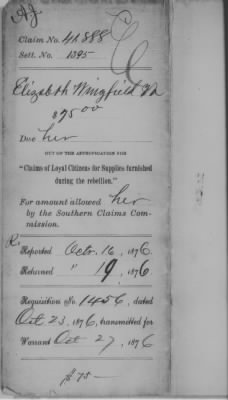 Claim No. 41,888
Sett. No. 1395
Elizabeth Wingfield Va
$75 00
Due her
OUT OF THE APPROPRIATION FOR
"Claims of Loyal Citizens for Supplies furnished
during the rebellion."
For amount allowed her
by the Southern Claims Com-
mission.
R.
Reported Octr. 16, 1876.
Returned " 19, 1876
Requisition No. 1456, dated
Oct 23, 1876, transmitted for
Warrant Oct 27, 1876
$75—